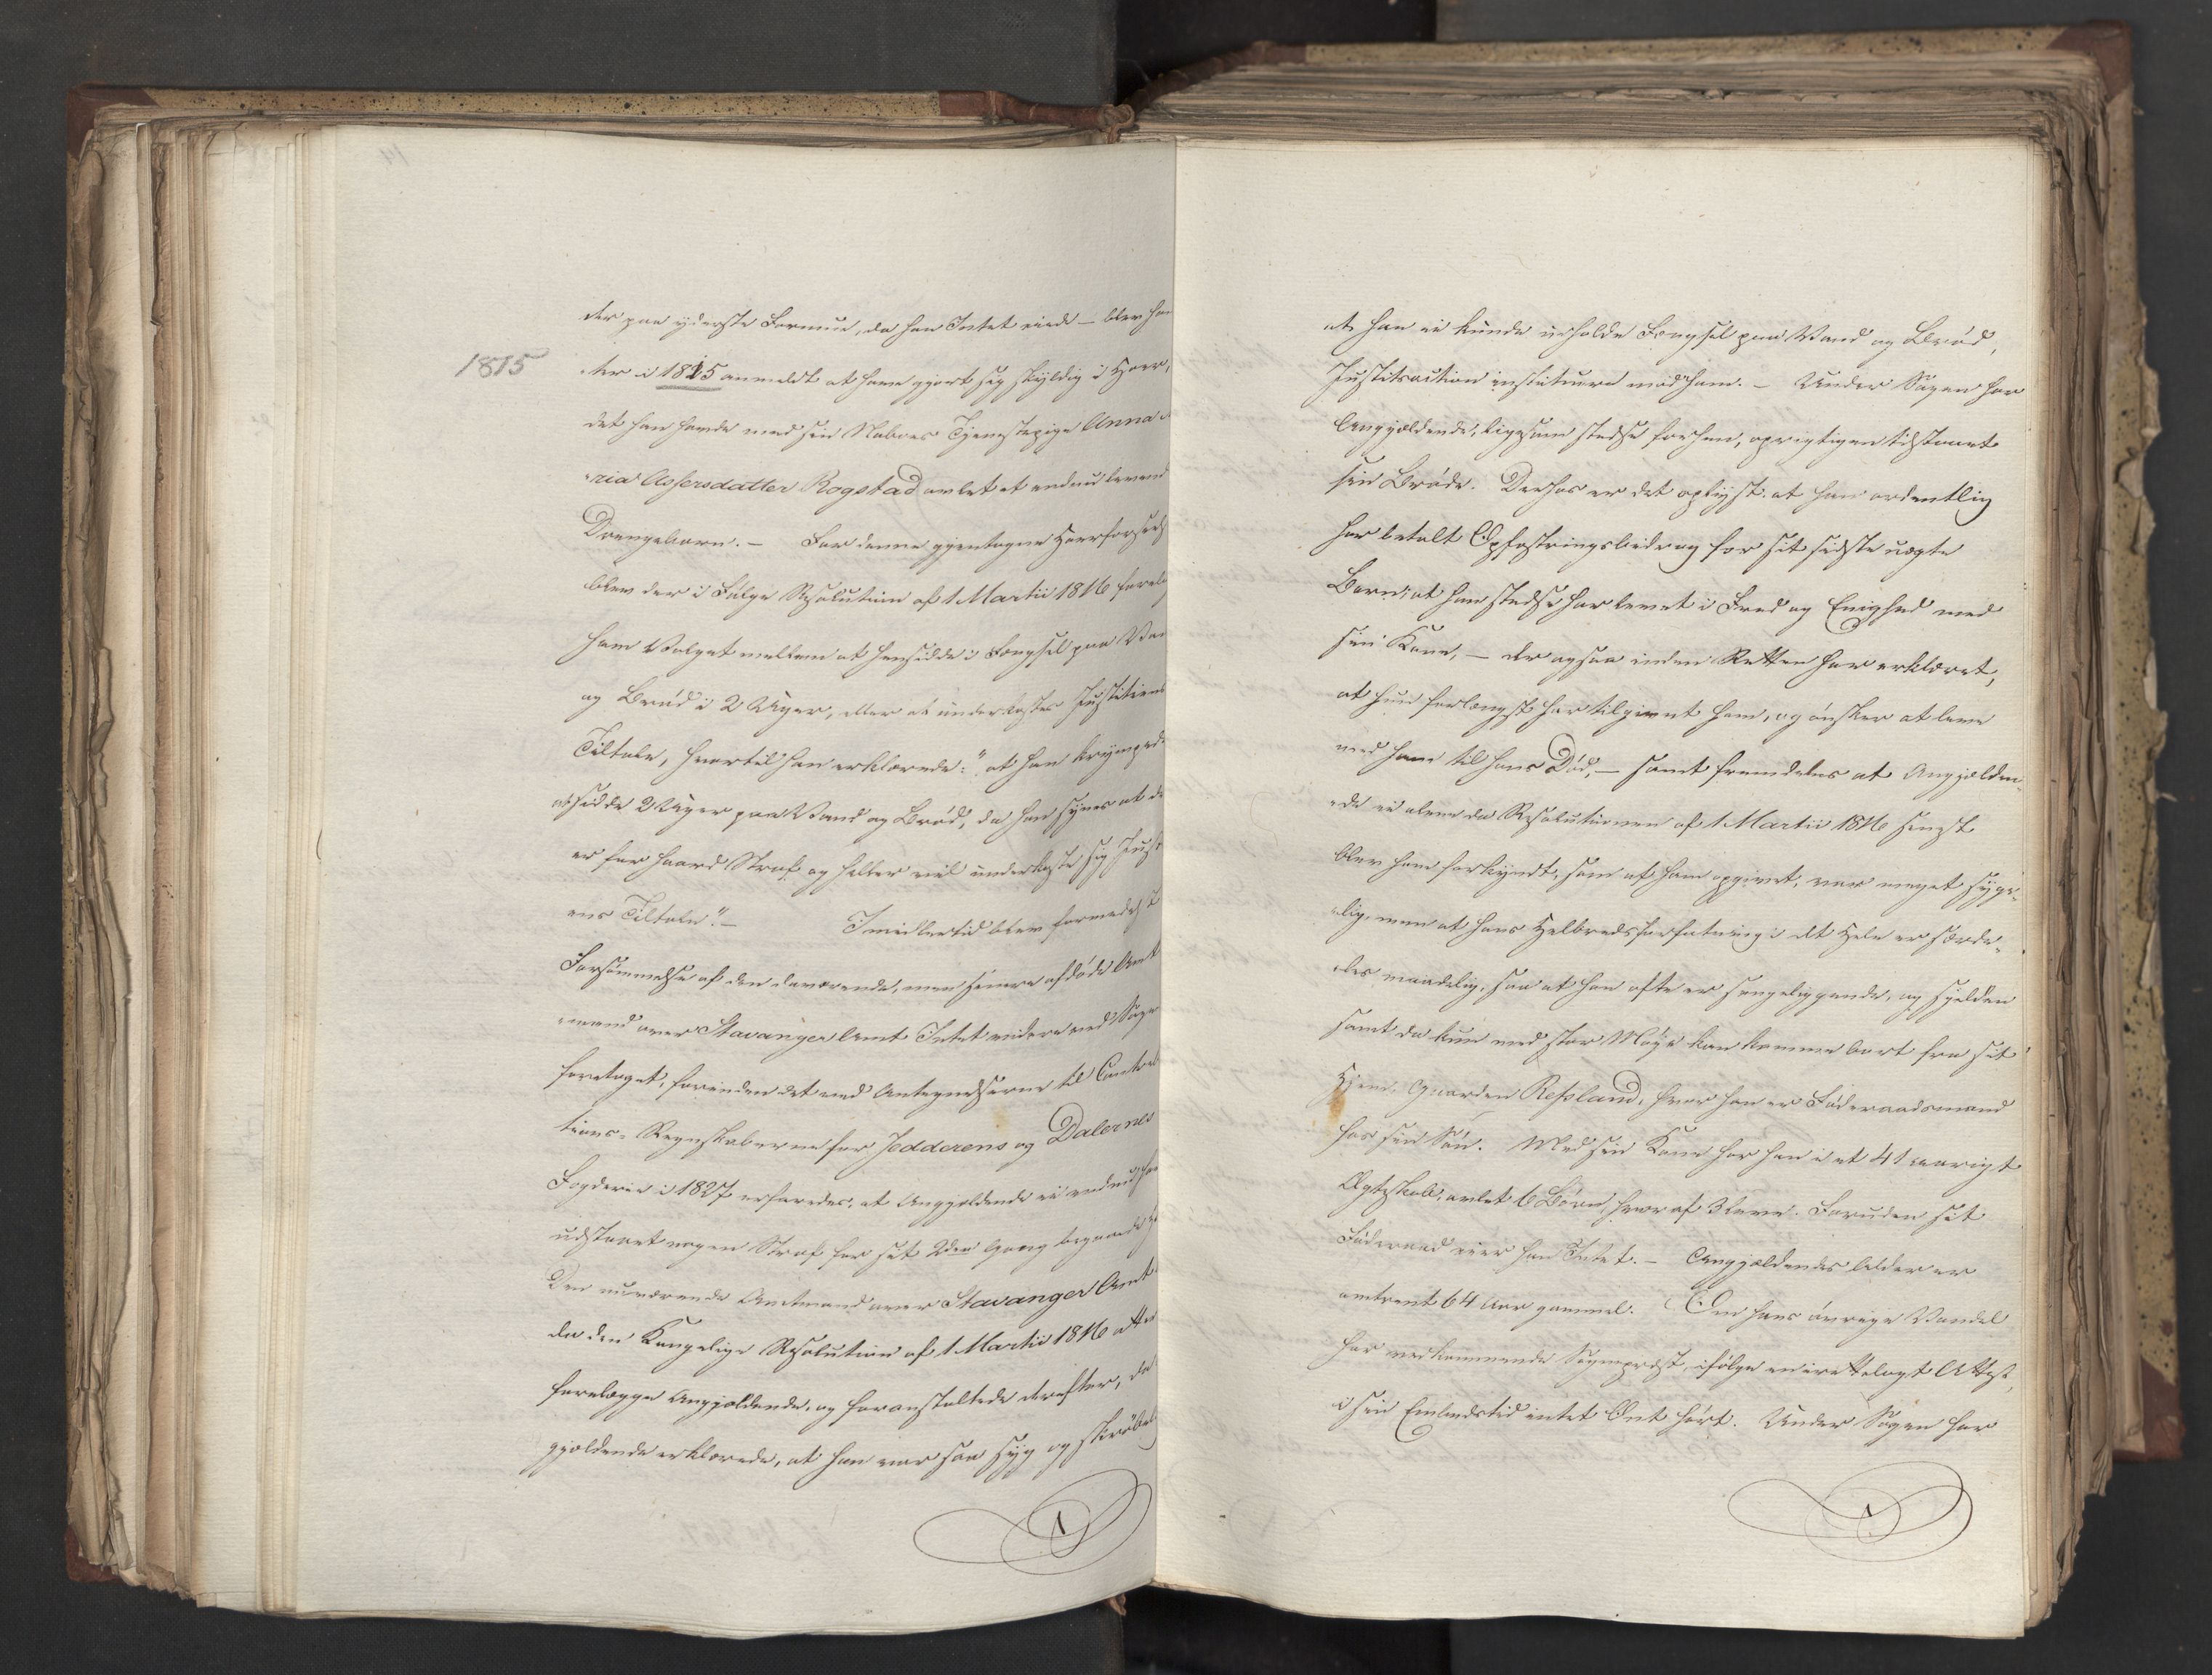 der paa yderste Formue, da han Intet eiede – blev han
1815
ter i 1815 anmeldt at have gjort sig skyldig i Hoer,
det han havde med sin Naboes Tjenestepige Anna
ria Assersdatter Rogstad avlet et endnu levend
Drengebarn. – For denne gjentagne Hoerforseelse
blev der i Følge Resolution af 1 Martii 1816 forelag
ham Valget mellem at hensidde i Fængsel paa Van
og Brød i 2 Uger, eller at underkastes Justitiens
Tiltale, hvortil han erklærede: "at han krympede
at sidde 2 Uger paa Vand og Brød, da han synes at de
er for haard Straf og heller vil underkaste sig Just
ens Tiltale". – Imidlertid blev formedelst
Forsømmelse af den daværende, men senere afdøde Amt
mand over Stavanger Amt Intet videre ved Sagen
foretaget, forinden det ved Antegnelserne til Contri
tions-Regnskaberne for Jedderens og Dalernes
Fogderie i 1827 erfaredes, at Angjældende ei endnu har
udstaaet nogen Straf for sit 2den Gang begaaede Ho
Den nuværende Amtmand over Stavanger Amt
da den Kongelige Resolution af 1 Martii 1816 atter
forelægge Angjældende, og foranstaltede derefter, da
gjældende erklærede, at han var saa syg og skrøbel
at han ei kunde udholde Fængsel paa Vand og Brød,
Justitsaction instituere mod ham. – Under Sagen har
Angjældende, ligesom stedse forhen, oprigtigen tilstaaet
sin Brøde. Derhos er det oplyst, at han ordentlig
har betalt Opfostringsbidrag for sit sidste uægte
Barn; at han stedse har levet i Fred og Enighed med
sin Kone, – der ogsaa inden Retten har erklæret,
at hun forlængst har tilgivet ham, og ønsker at leve
med ham til hans Død, – samt fremdeles at Angjælden-
de ei alene da Resolutionen af 1 Martii 1816 senest
blev ham forkyndt, som af ham opgivet, var meget syge-
lig, men at hans Helbredsforfatning i det Hele er særde-
les maadelig, saa at han ofte er sengeliggende, og sjelden
samt da kun med stor Møje kan komme bort fra sit
Hjem, Gaarden Refsland, hvor han er Føderaadsmand
hos sin Søn. Med sin Kone har han i et 41 aarigt
Ægteskab, avlet 6 Børn, hvoraf 3 leve. Foruden sit
Føderaad eier han Intet. – Angjældendes Alder er
omtrent 64 Aar gammel. Om hans øvrige Vandel
har vedkommende Sogneprest, ifølge en irettelagt Attest,
i sin Embedstid intet Ondt hørt. Under Sagen har